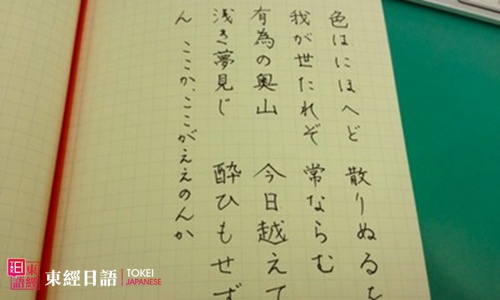 色はにほへど 散りぬるを
我が世たれぞ 常ならむ
有為の奥山 今日越えて
浅き夢見じ 酔ひもせず
ん ここか、ここがええのんか
東經日語
TOKEI
JAPANESE